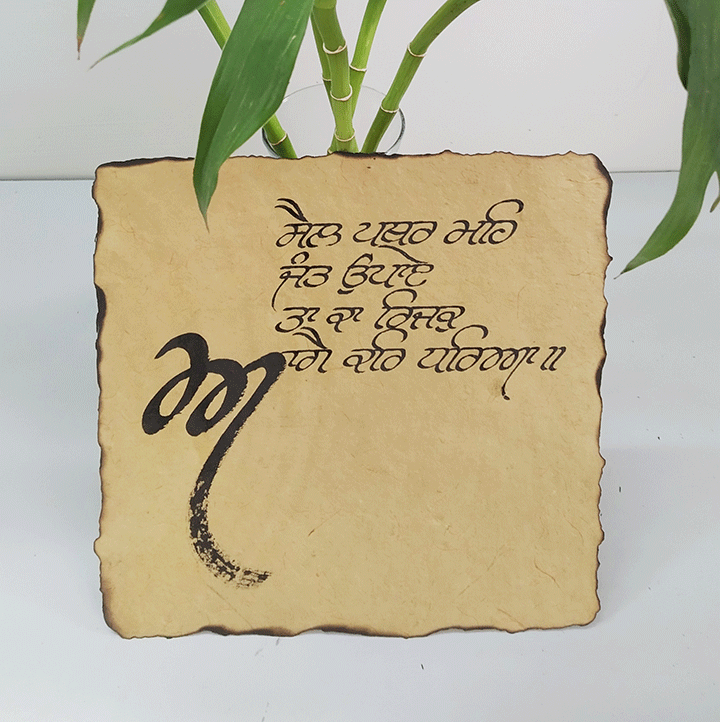 ਸੈਲ ਪਥਰ ਮਹਿ
ਜੰਤ ਉਪਾਏ
ਤਾ ਕਾ ਰਿਜਕੁ
ਆਗੈ ਕਰਿ ਧਰਿਆ॥